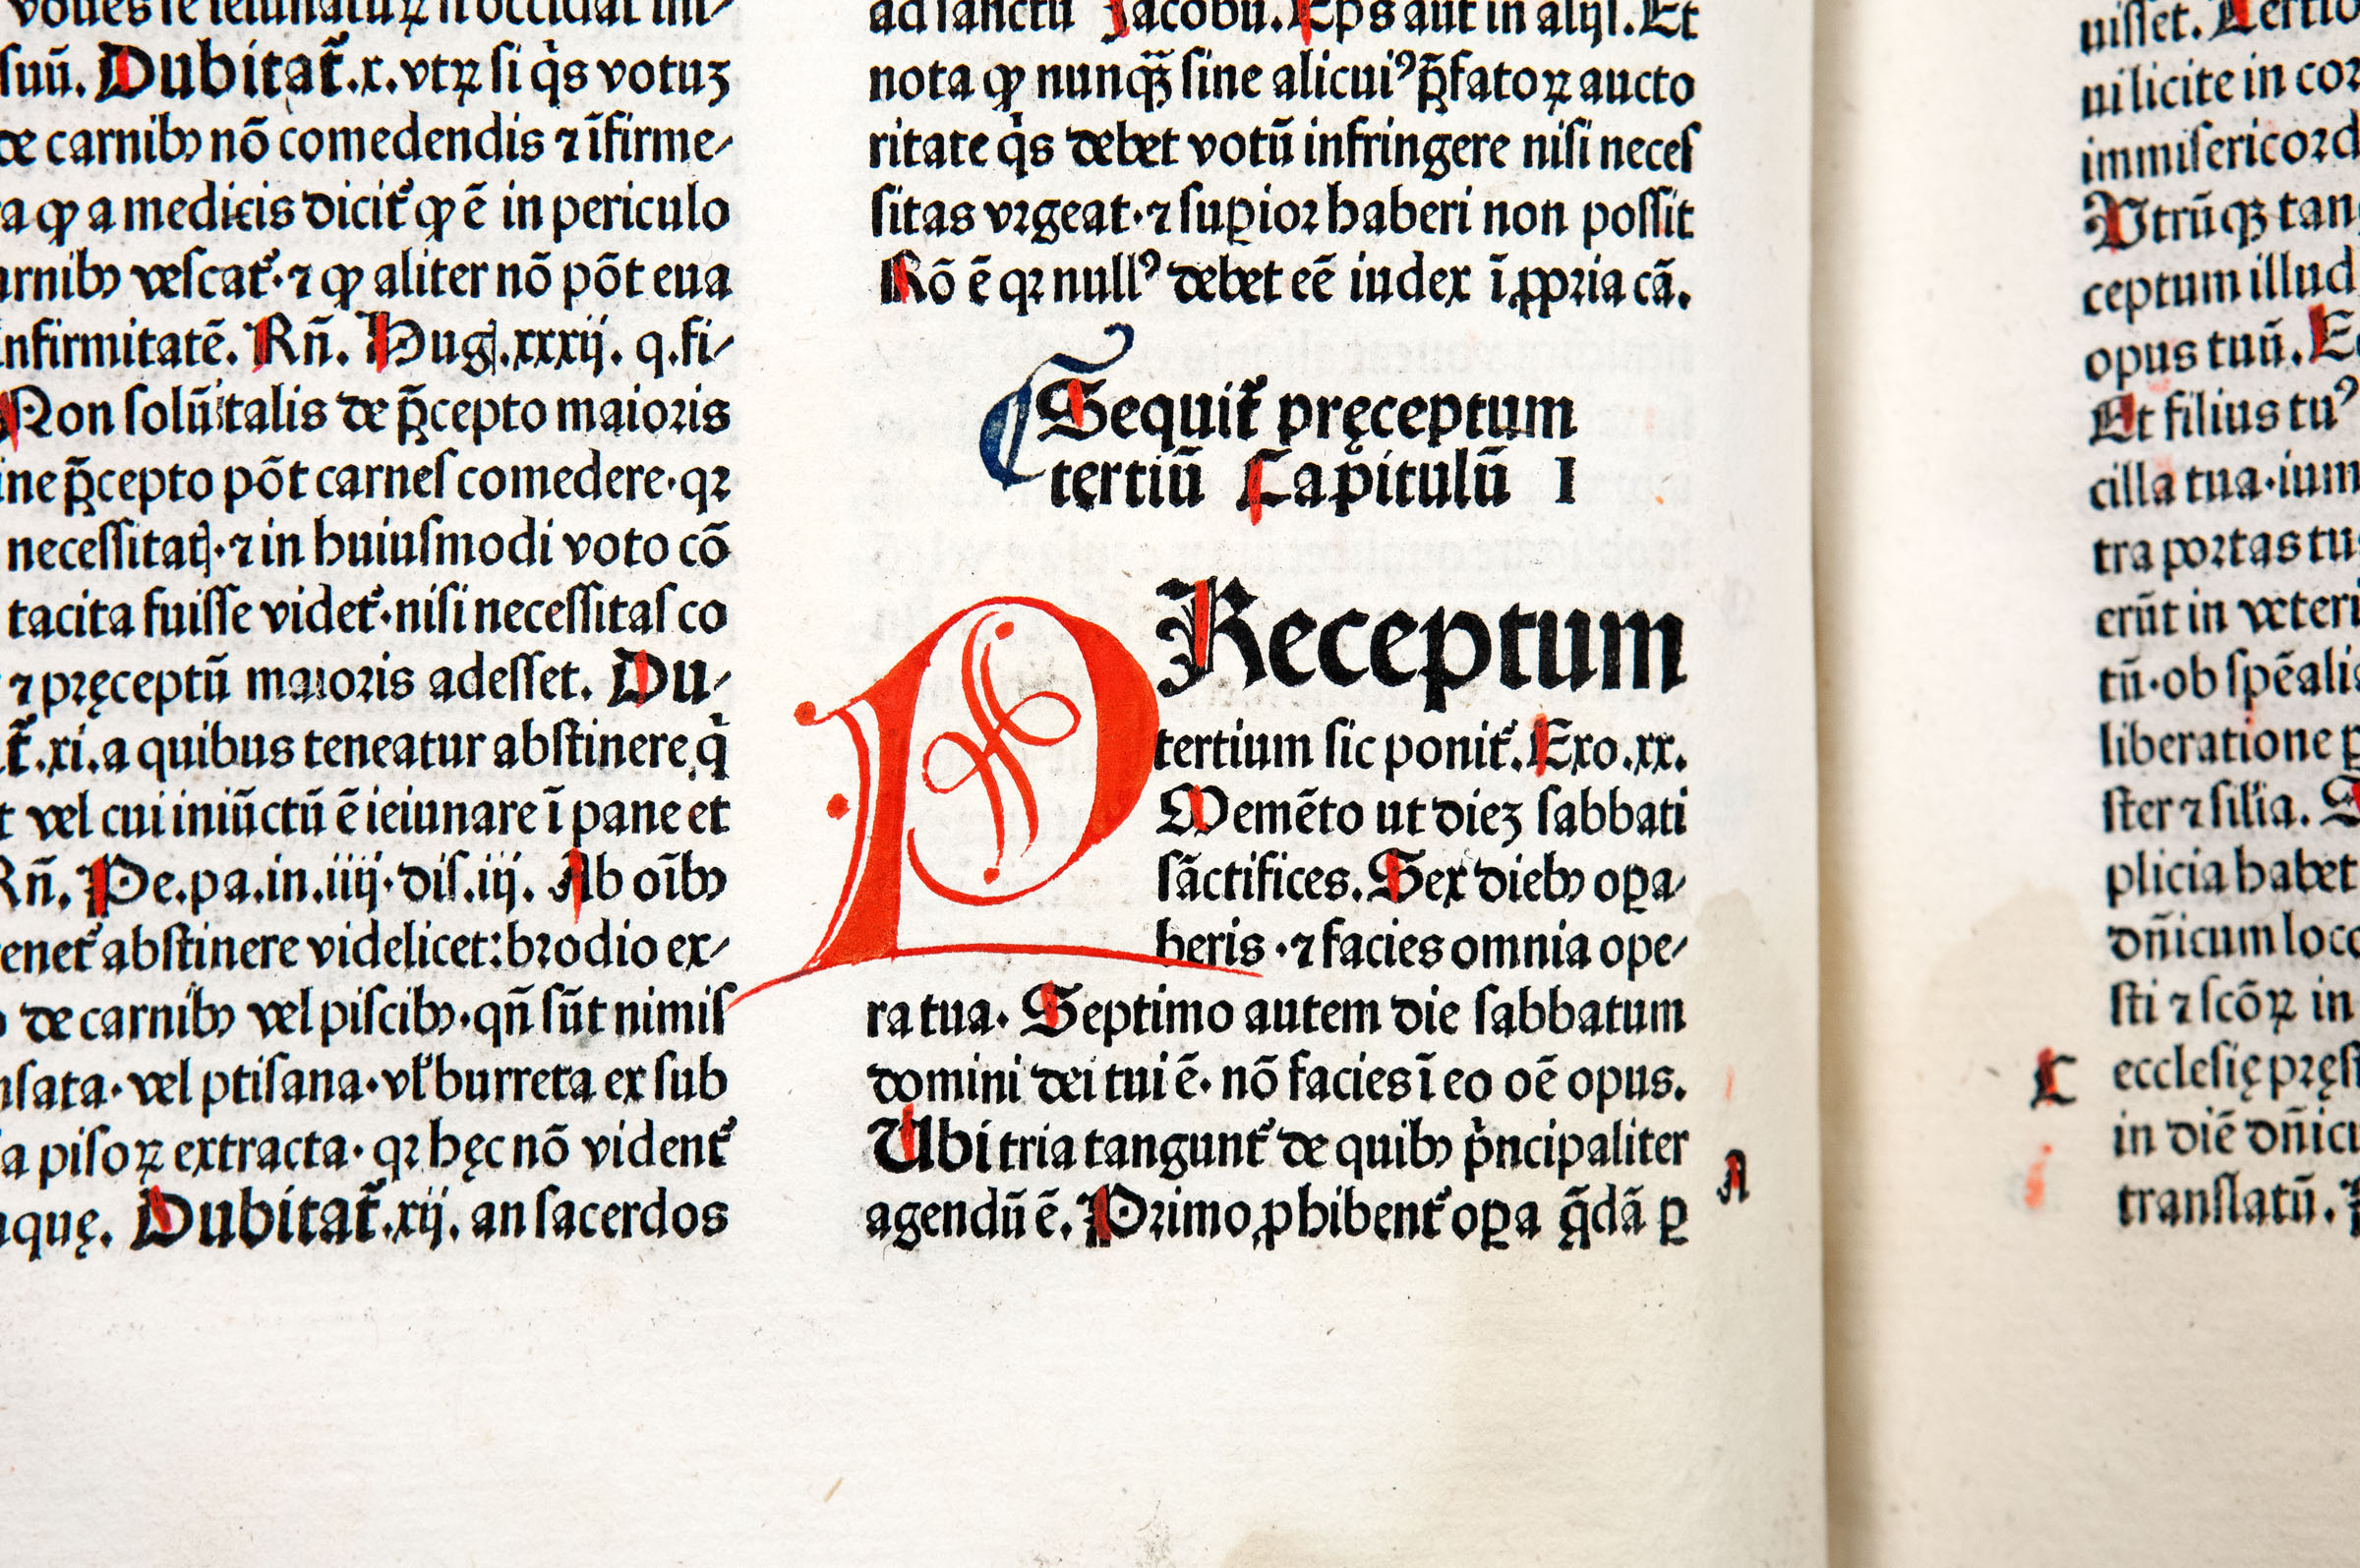 suū. Dubitat᷑.x. vtꝝ si q̇s votuꝫ
de carnibꝫ nō comedendis ⁊ īfirme⸗
a ꝙ a medicis dicit᷑ ꝙ ē in periculo
vescat᷑·⁊ ꝙ aliter nō pōt eua
nfirmitatē. Rñ. Hug.xxxij. q.fi⸗
Non solū talis de p̄cepto maioris
ine p̄cepto pōt carneſ comedere·qꝛ
neceſſitatꝭ·⁊ in huiuſmodi voto cō
tacita fuiſſe videt᷑·niſi neceſſitaſ co
⁊ pręceptū maioꝛis adeſſet. Du⸗
t᷑.xi.a quibus teneatur abſtinere q̇
t vel cui iniūctū ē ieiunare ī pane et
Rñ. Pe.pa.in.iiij·diſ.iij. Ab oībꝫ
enet᷑ abſtinere videlicet:bꝛodio ex⸗
de carnibꝫ vel piſcibꝫ·qñ ſūt nimiſ
ſata·vel ptiſana·vƚ burreta ex ſub
a piſoꝝ extracta·qꝛ hęc nō vident᷑
quę. Dubitat᷑.xij. an ſacerdos
ad ſanctū Jacobū. Ep̄s aut in alijſ. Et
nota ꝙ nunꝙ̄ ſine alicuiꝰ p̄fatoꝝ aucto
ritate q̇s debet votū infringere niſi neceſ
ſitas vꝛgeat·⁊ ſuꝑioꝛ haberi non poſſit
Rō ē qꝛ nullꝰ debet eē iudex ī ꝓpꝛia cā.
Sequit᷑ pręceptum
tertiū Capitulū I
PReceptum
tertium ſic ponit᷑. Exo.xx.
Memēto ut dieꝫ ſabbati
ſāctifices. Sex diebꝫ oꝑa⸗
beris·⁊ facies omnia ope⸗
ra tua. Septimo autem die ſabbatum
domini dei tui ē. nō facies ī eo oē opus.
Ubi tria tangunt᷑ de quibꝫ p̍ncipaliter
agendū ē. Pꝛimo ꝓhibent᷑ oꝑa q̄dā ꝑ
A
uiſſet.
ni licite in
Utrūqꝫ
ceptum illud
opus tuū.
Et filius tuꝰ
cilla tua·
tra poꝛtas
erūt in veteri
tū·ob
liberatione
ſter ⁊ filia.
plicia habet
dñicum loco
ſti ⁊ ſcōꝝ in
C
eccleſię
in diē
tranſlatū.